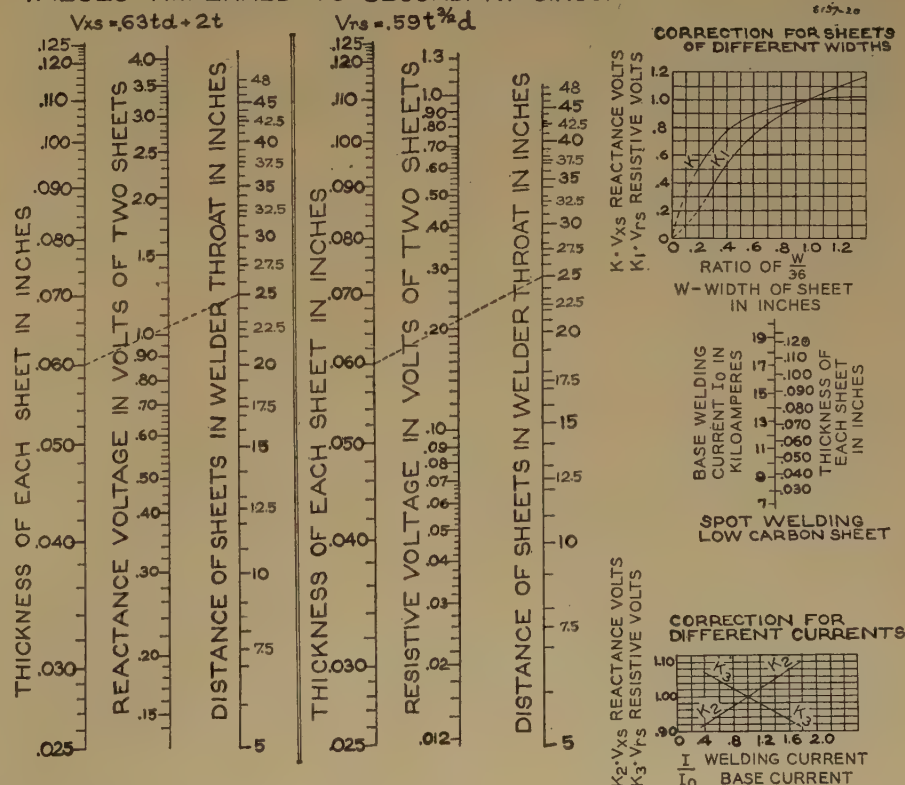 Vxs = .63td + 2t
Vrs = .59t^3/2 d
THICKNESS OF EACH SHEET IN INCHES
.125
.120
.110
.100
.090
.080
.070
.060
.050
.040
.030
.025
REACTANCE VOLTAGE IN VOLTS OF TWO SHEETS
4.0
3.5
3.0
2.5
2.0
1.5
1.0
.90
.80
.70
.60
.50
.40
.30
.20
.15
DISTANCE OF SHEETS IN WELDER THROAT IN INCHES
48
45
42.5
40
37.5
35
32.5
30
27.5
25
22.5
20
17.5
15
12.5
10
7.5
5
THICKNESS OF EACH SHEET IN INCHES
.125
.120
.110
.100
.090
.080
.070
.060
.050
.040
.030
.025
RESISTIVE VOLTAGE IN VOLTS OF TWO SHEETS
1.3
1.0
.90
.80
.70
.60
.50
.40
.30
.20
.10
.09
.08
.07
.06
.05
.04
.03
.02
.012
DISTANCE OF SHEETS IN WELDER THROAT IN INCHES
48
45
42.5
40
37.5
35
32.5
30
27.5
25
22.5
20
17.5
15
12.5
10
7.5
5
CORRECTION FOR SHEETS
OF DIFFERENT WIDTHS
K·Vxs REACTANCE VOLTS
K1·Vrs RESISTIVE VOLTS
1.2
1.0
.8
.6
.4
.2
0
K
K1
0 .2 .4 .6 .8 1.0 1.2
RATIO OF W/36
W-WIDTH OF SHEET
IN INCHES
BASE WELDING
CURRENT I0 IN
KILOAMPERES
19
17
15
13
11
9
7
.120
.110
.100
.090
.080
.070
.060
.050
.040
.030
THICKNESS OF
EACH SHEET
IN INCHES
SPOT WELDING
LOW CARBON SHEET
CORRECTION FOR
DIFFERENT CURRENTS
K2·Vxs REACTANCE VOLTS
K3·Vrs RESISTIVE VOLTS
1.10
1.00
.90
K3
K2
K2
K3
0 .4 .8 1.2 1.6 2.0
I WELDING CURRENT
I0 BASE CURRENT